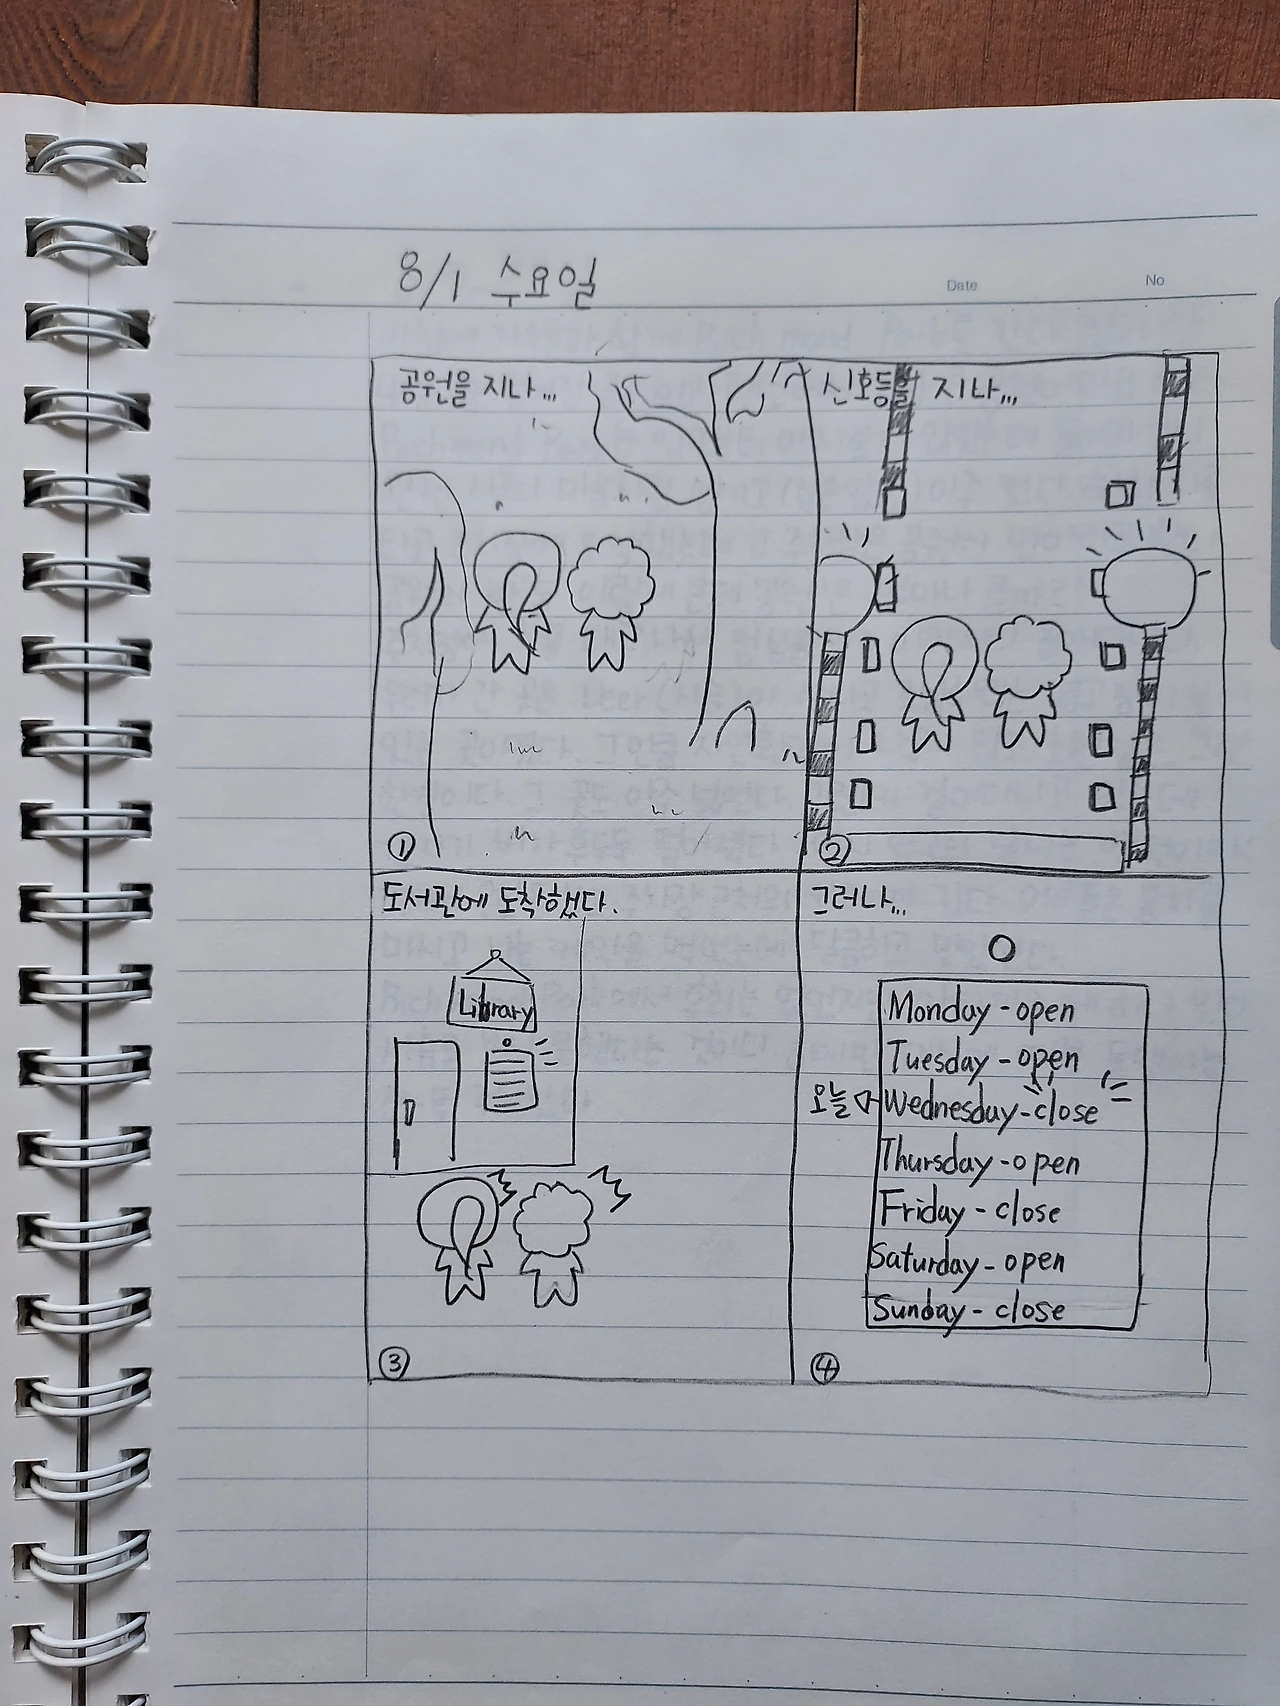 8/1 수요일
Date
No
공원을 지나...
①
신호등을 지나...
②
도서관에 도착했다.
Library
③
그러나...
Monday - open
Tuesday - open
오늘 Wednesday - close
Thursday - open
Friday - close
Saturday - open
Sunday - close
④